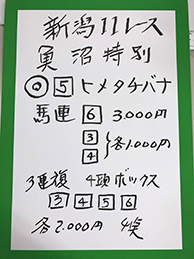 新潟11レース
魚沼特別
◎ 5 ヒメタチバナ
馬連 6 3,000円
3
4 } 各1,000円
3連複 4頭ボックス
3 4 5 6
各2,000円 4点